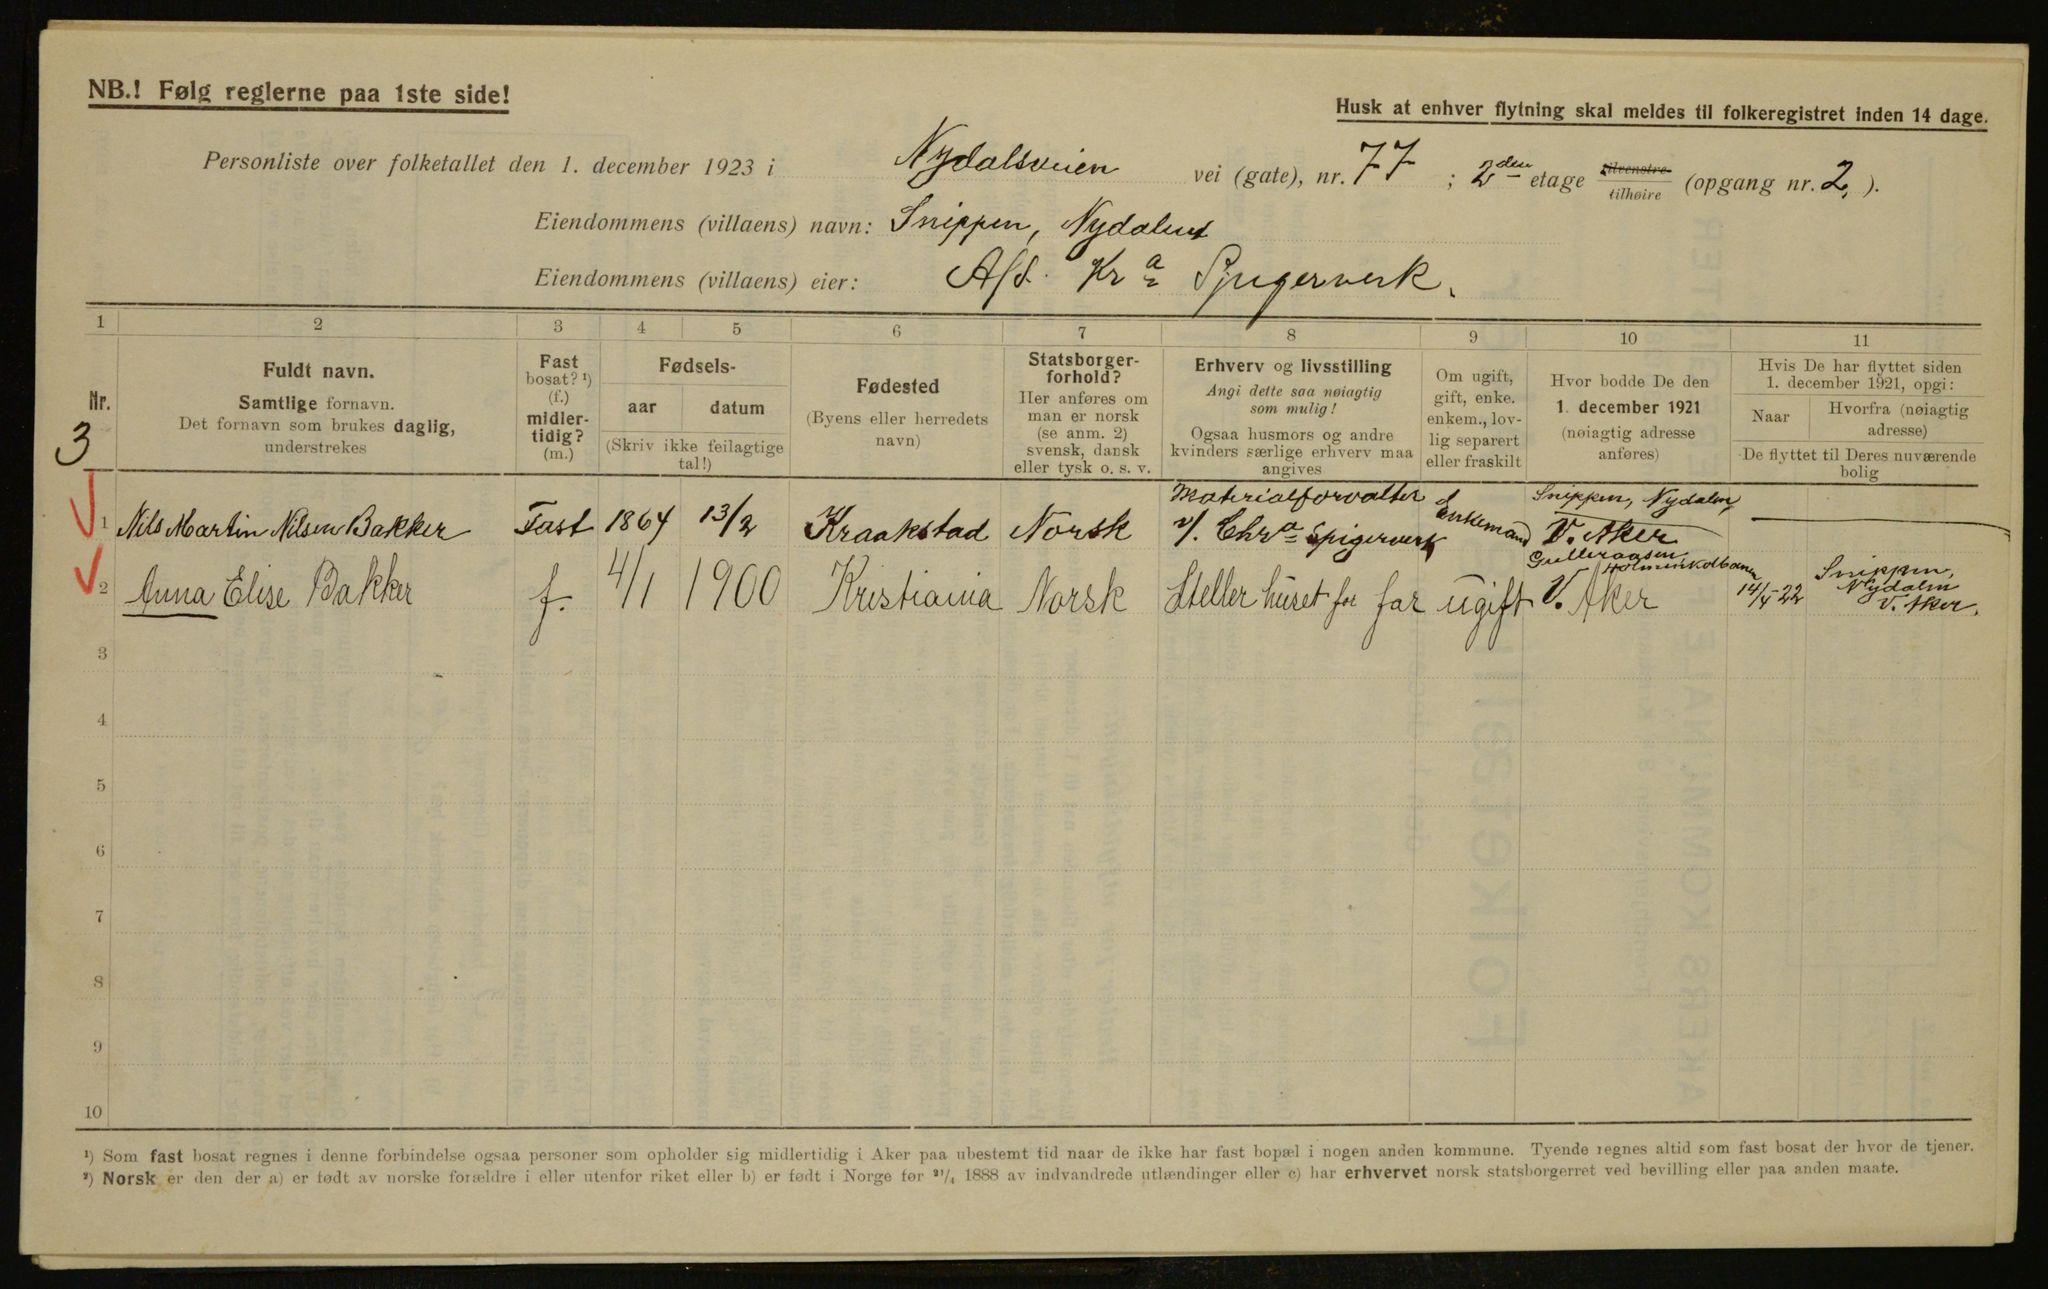 NB.! Følg reglerne paa 1ste side!
Husk at enhver flytning skal meldes til folkeregistret inden 14 dage.
Personliste over folketallet den 1. december 1923 i Nydalsveien vei (gate), nr. 77 ; 2den etage tilvenstre tilhøire (opgang nr. 2, ).
Eiendommens (villaens) navn: Snippen, Nydalen
Eiendommens (villaens) eier: A/S. Kra Spigerverk.
1 2 3 4 5 6 7 8 9 10 11
Nr.
3
Fuldt navn.
Samtlige fornavn.
Det fornavn som brukes daglig,
understrekes
Fast
bosat? ¹)
(f.)
midler-
tidig?
(m.)
Fødsels-
aar datum
(Skriv ikke feilagtige
tal!)
Fødested
(Byens eller herredets
navn)
Statsborger-
forhold?
Her anføres om
man er norsk
(se anm. 2)
svensk, dansk
eller tysk o. s. v.
Erhverv og livsstilling
Angi dette saa nøiagtig
som mulig!
Ogsaa husmors og andre
kvinders særlige erhverv maa
angives
Om ugift,
gift, enke.
enkem., lov-
lig separert
eller fraskilt
Hvor bodde De den
1. december 1921
(nøiagtig adresse
anføres)
Hvis De har flyttet siden
1. december 1921, opgi:
Naar
Hvorfra (nøiagtig
adresse)
De flyttet til Deres nuværende
bolig
1 Nils Martin Nilsen Bakker Fast 1864 13/2 Kraakstad Norsk Materialforvalter v/. Chra Spigerverk Enkemand Snippen, Nydalen V. Aker
2 Anna Elise Bakker f. 4/1 1900 Kristiania Norsk Steller huset for far ugift Gulleraasen Holmenkolbanen V. Aker 14/4-22 Snippen, Nydalen V. Aker.
3
4
5
6
7
8
9
10
¹) Som fast bosat regnes i denne forbindelse ogsaa personer som opholder sig midlertidig i Aker paa ubestemt tid naar de ikke har fast bopæl i nogen anden kommune. Tyende regnes altid som fast bosat der hvor de tjener.
²) Norsk er den der a) er født av norske forældre i eller utenfor riket eller b) er født i Norge før ²¹/₄ 1888 av indvandrede utlændinger eller c) har erhvervet norsk statsborgerret ved bevilling eller paa anden maate.